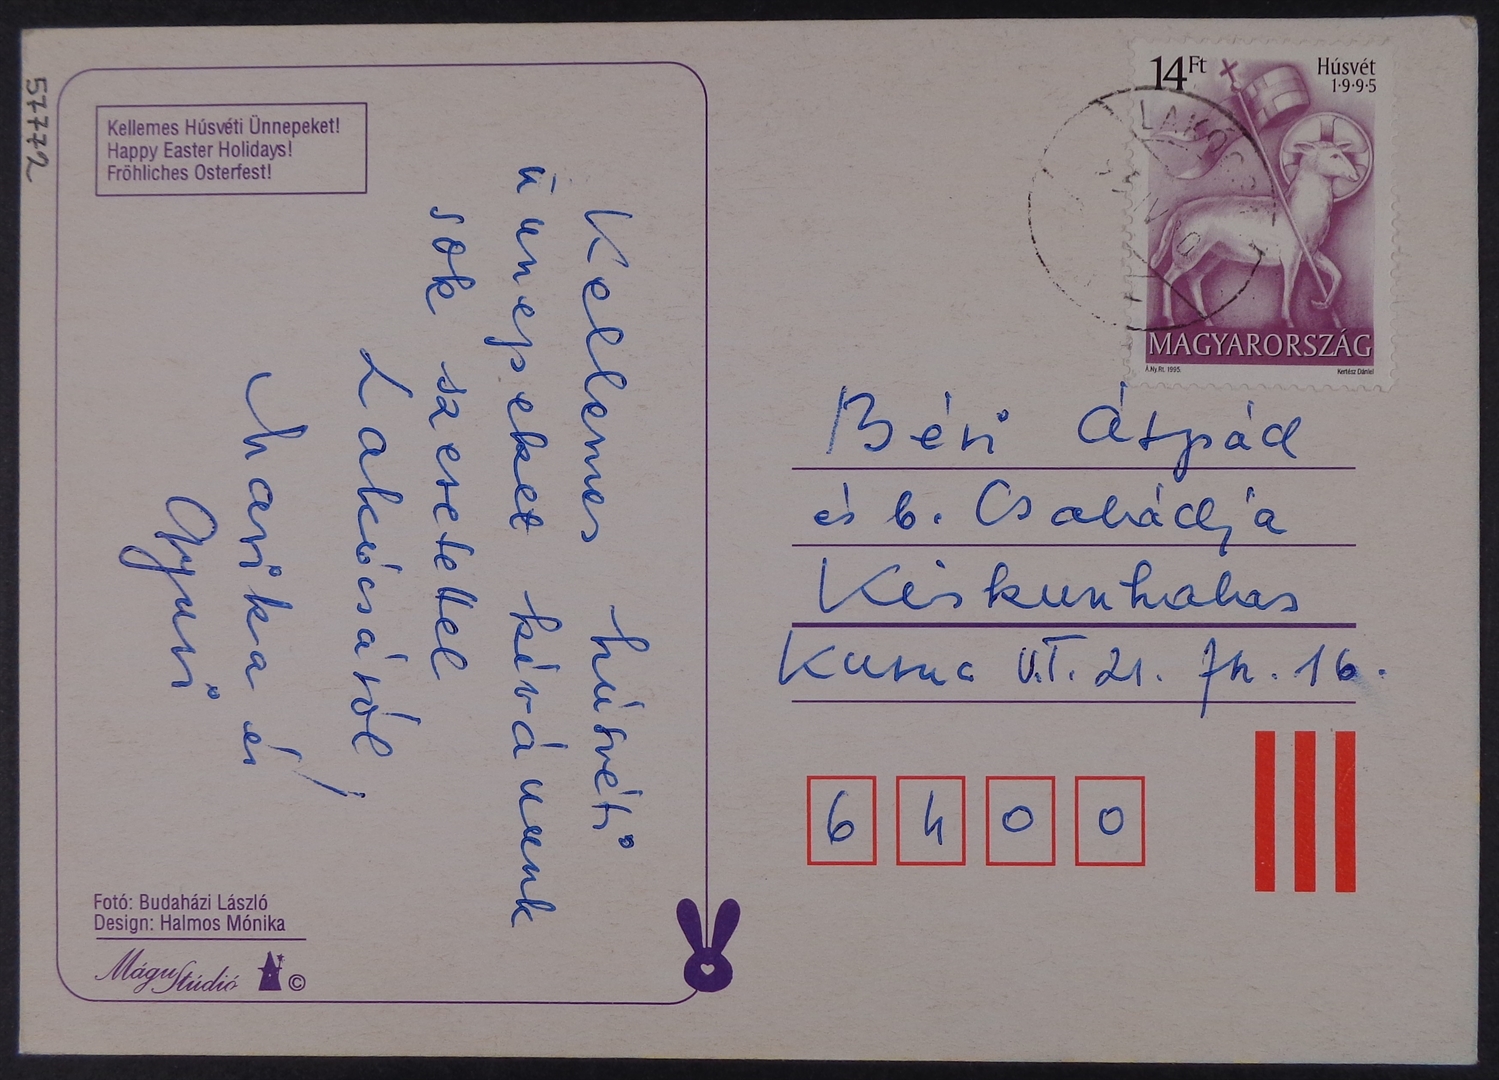 57772
Kellemes Húsvéti Ünnepeket!
Happy Easter Holidays!
Fröhliches Osterfest!
Kellemes húsvéti
ünnepeket kívánunk
sok szeretettel
Lakócsáról!
Marika és
Gyuri
Fotó: Budaházi László
Design: Halmos Mónika
Mágus Stúdió ©
14Ft
Húsvét
1·9·9·5
MAGYARORSZÁG
Á.Ny.Rt. 1995.
Kertész Dániel
LAKÓCSA
Béri Árpád
és b. Családja
Kiskunhalas
Kuruc V.T. 21. fh. 16.
6400